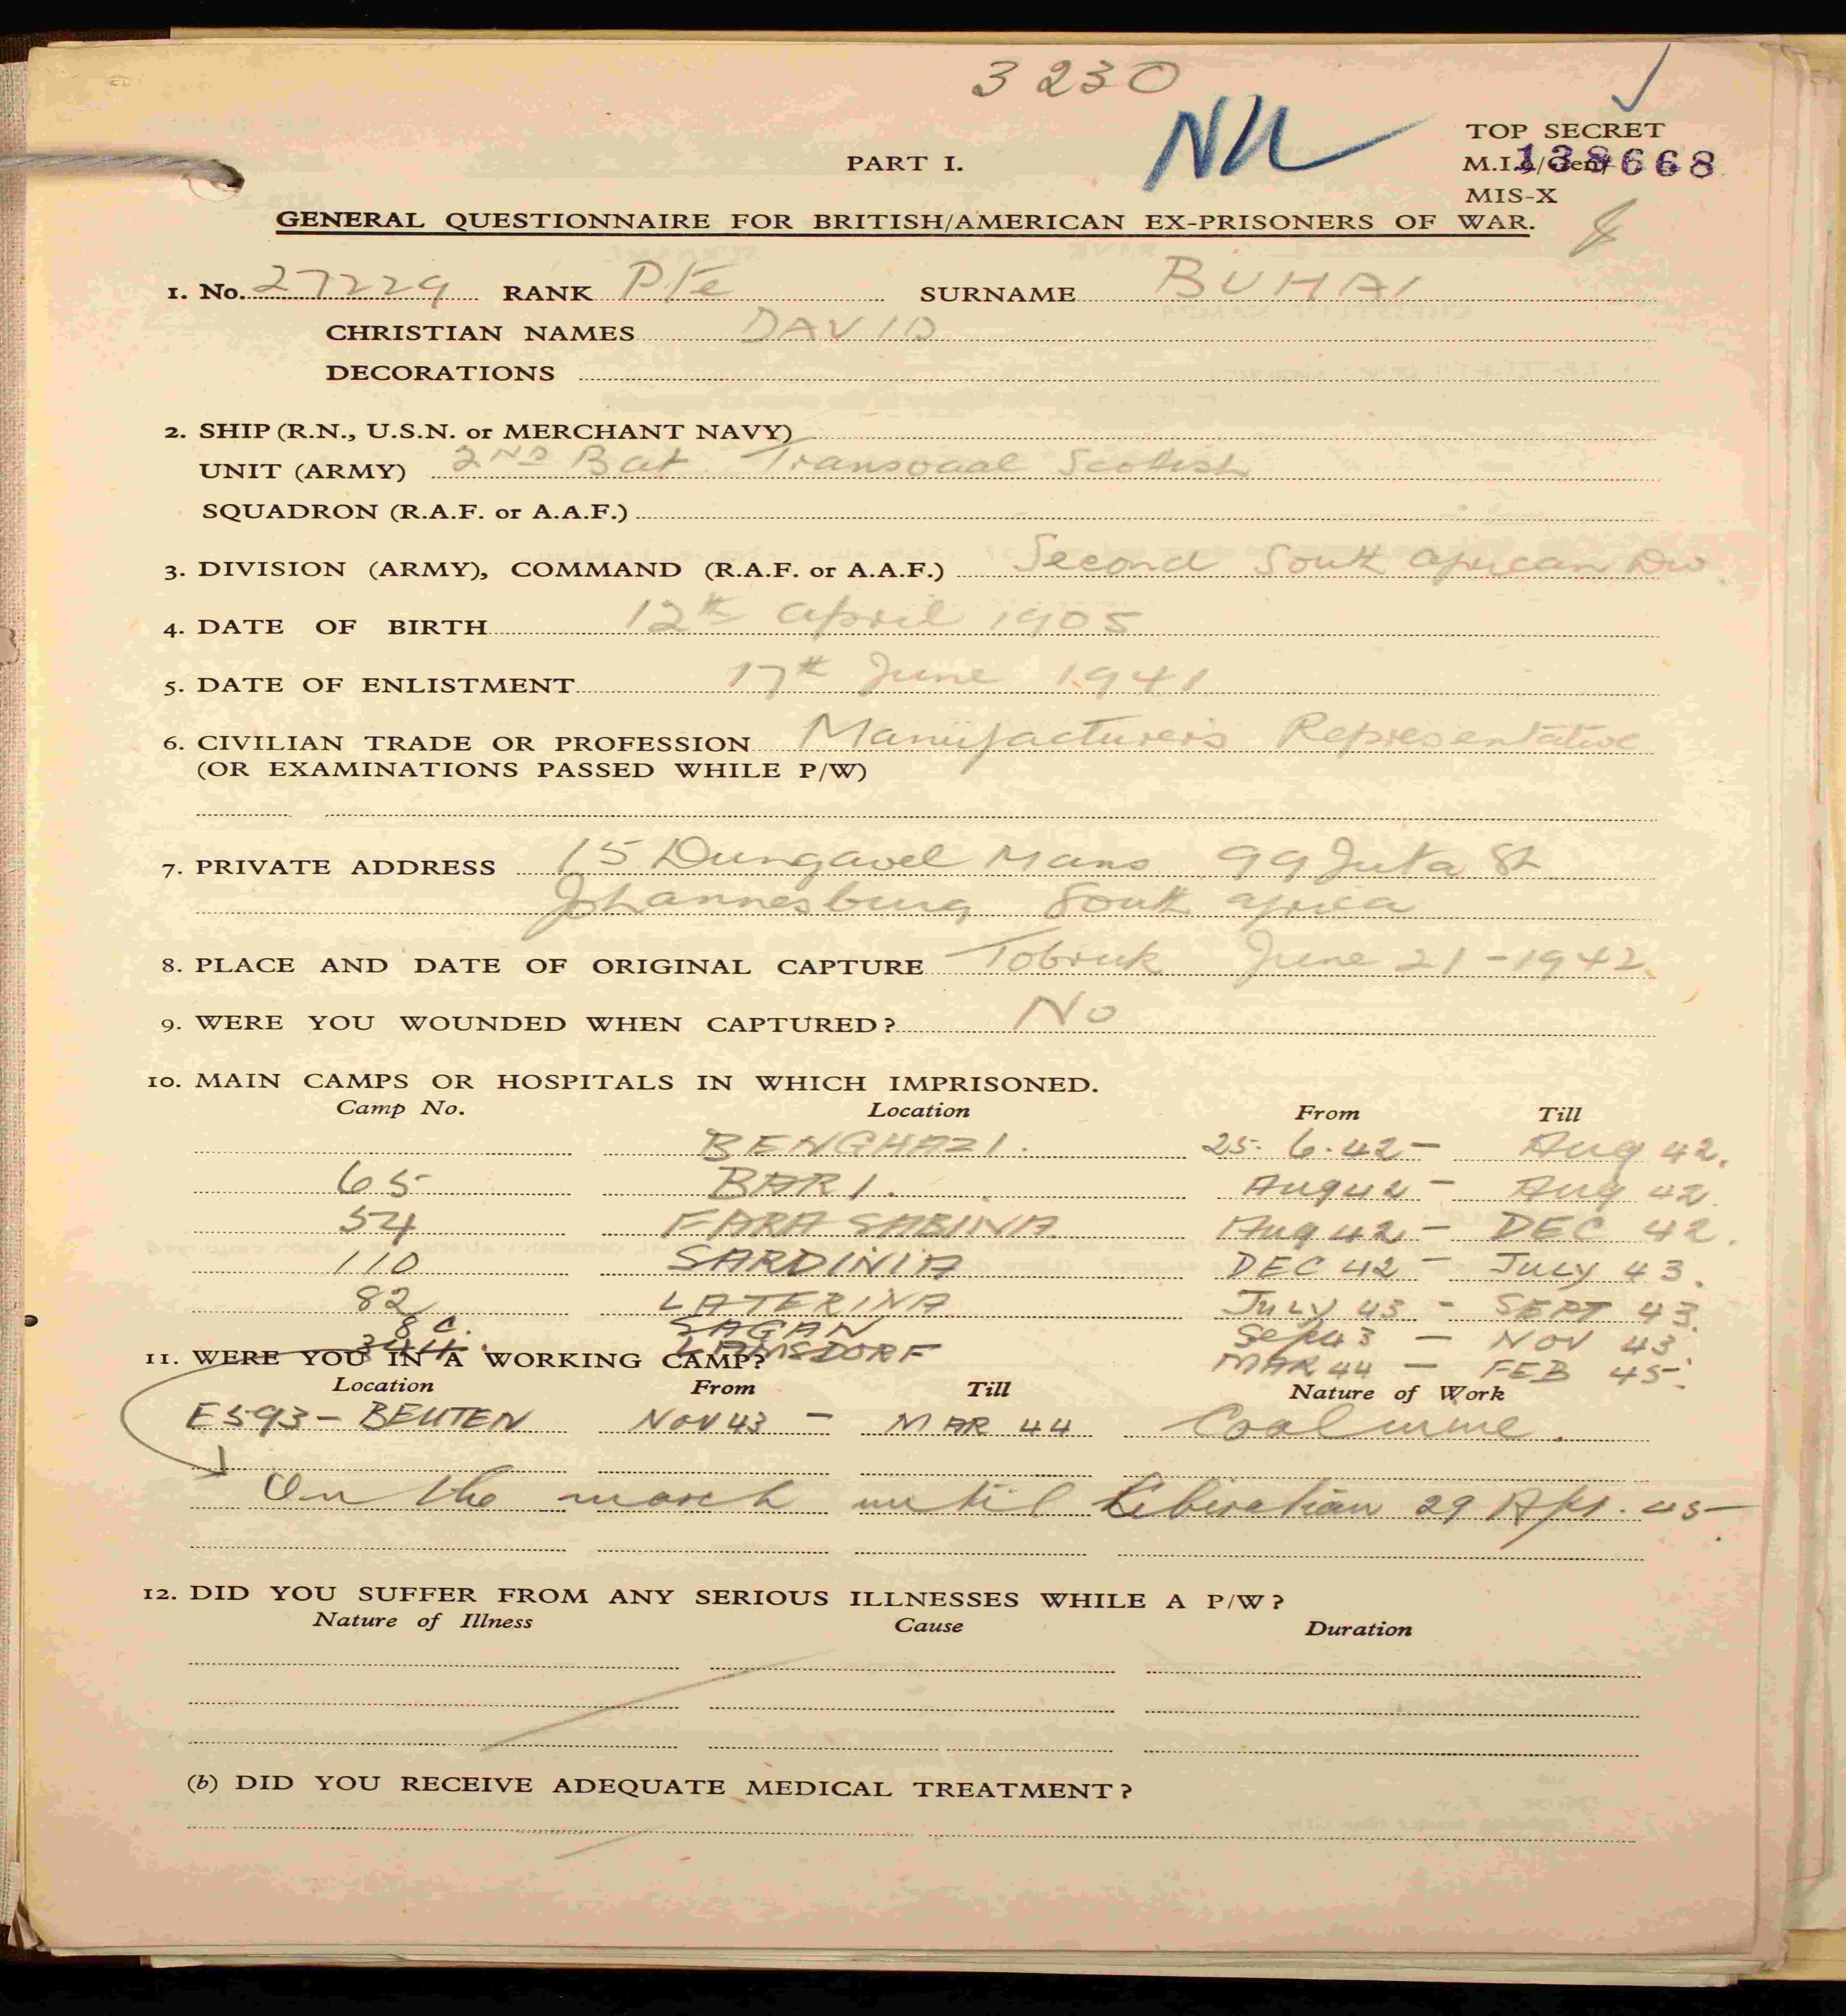 3230
NIL
TOP SECRET
PART I.
M.I.9/Gen/ 138668
MIS-X
GENERAL QUESTIONNAIRE FOR BRITISH/AMERICAN EX-PRISONERS OF WAR.
1. No. 27229 RANK Pte SURNAME BUHAI
CHRISTIAN NAMES DAVID
DECORATIONS
2. SHIP (R.N., U.S.N. or MERCHANT NAVY)
UNIT (ARMY) 2ND Bat Transvaal Scottish
SQUADRON (R.A.F. or A.A.F.)
3. DIVISION (ARMY), COMMAND (R.A.F. or A.A.F.) Second South African Div.
4. DATE OF BIRTH 12th April 1905
5. DATE OF ENLISTMENT 17th June 1941
6. CIVILIAN TRADE OR PROFESSION Manufacturers Representative
(OR EXAMINATIONS PASSED WHILE P/W)
7. PRIVATE ADDRESS 15 Dungavel Mans 99 Juta St
Johannesburg South Africa
8. PLACE AND DATE OF ORIGINAL CAPTURE Tobruk June 21 - 1942
9. WERE YOU WOUNDED WHEN CAPTURED? No
10. MAIN CAMPS OR HOSPITALS IN WHICH IMPRISONED.
Camp No. Location From Till
BENGHAZI. 25. 6. 42 - Aug 42.
65 BARI. Aug 42 - Aug 42.
54 FARA SABINA Aug 42 - DEC 42.
110 SARDINIA DEC 42 - July 43.
82 LATERINA July 43 - SEPT 43.
8 C. SAGAN Sep 43 - NOV 43
344. LAMSDORF MAR 44 - FEB 45.
11. WERE YOU IN A WORKING CAMP?
Location From Till Nature of Work
E593 - BEUTEN NOV 43 - MAR 44 Coalmine.
On the march until Liberation 29 Apr. 45.
12. DID YOU SUFFER FROM ANY SERIOUS ILLNESSES WHILE A P/W?
Nature of Illness Cause Duration
(b) DID YOU RECEIVE ADEQUATE MEDICAL TREATMENT?